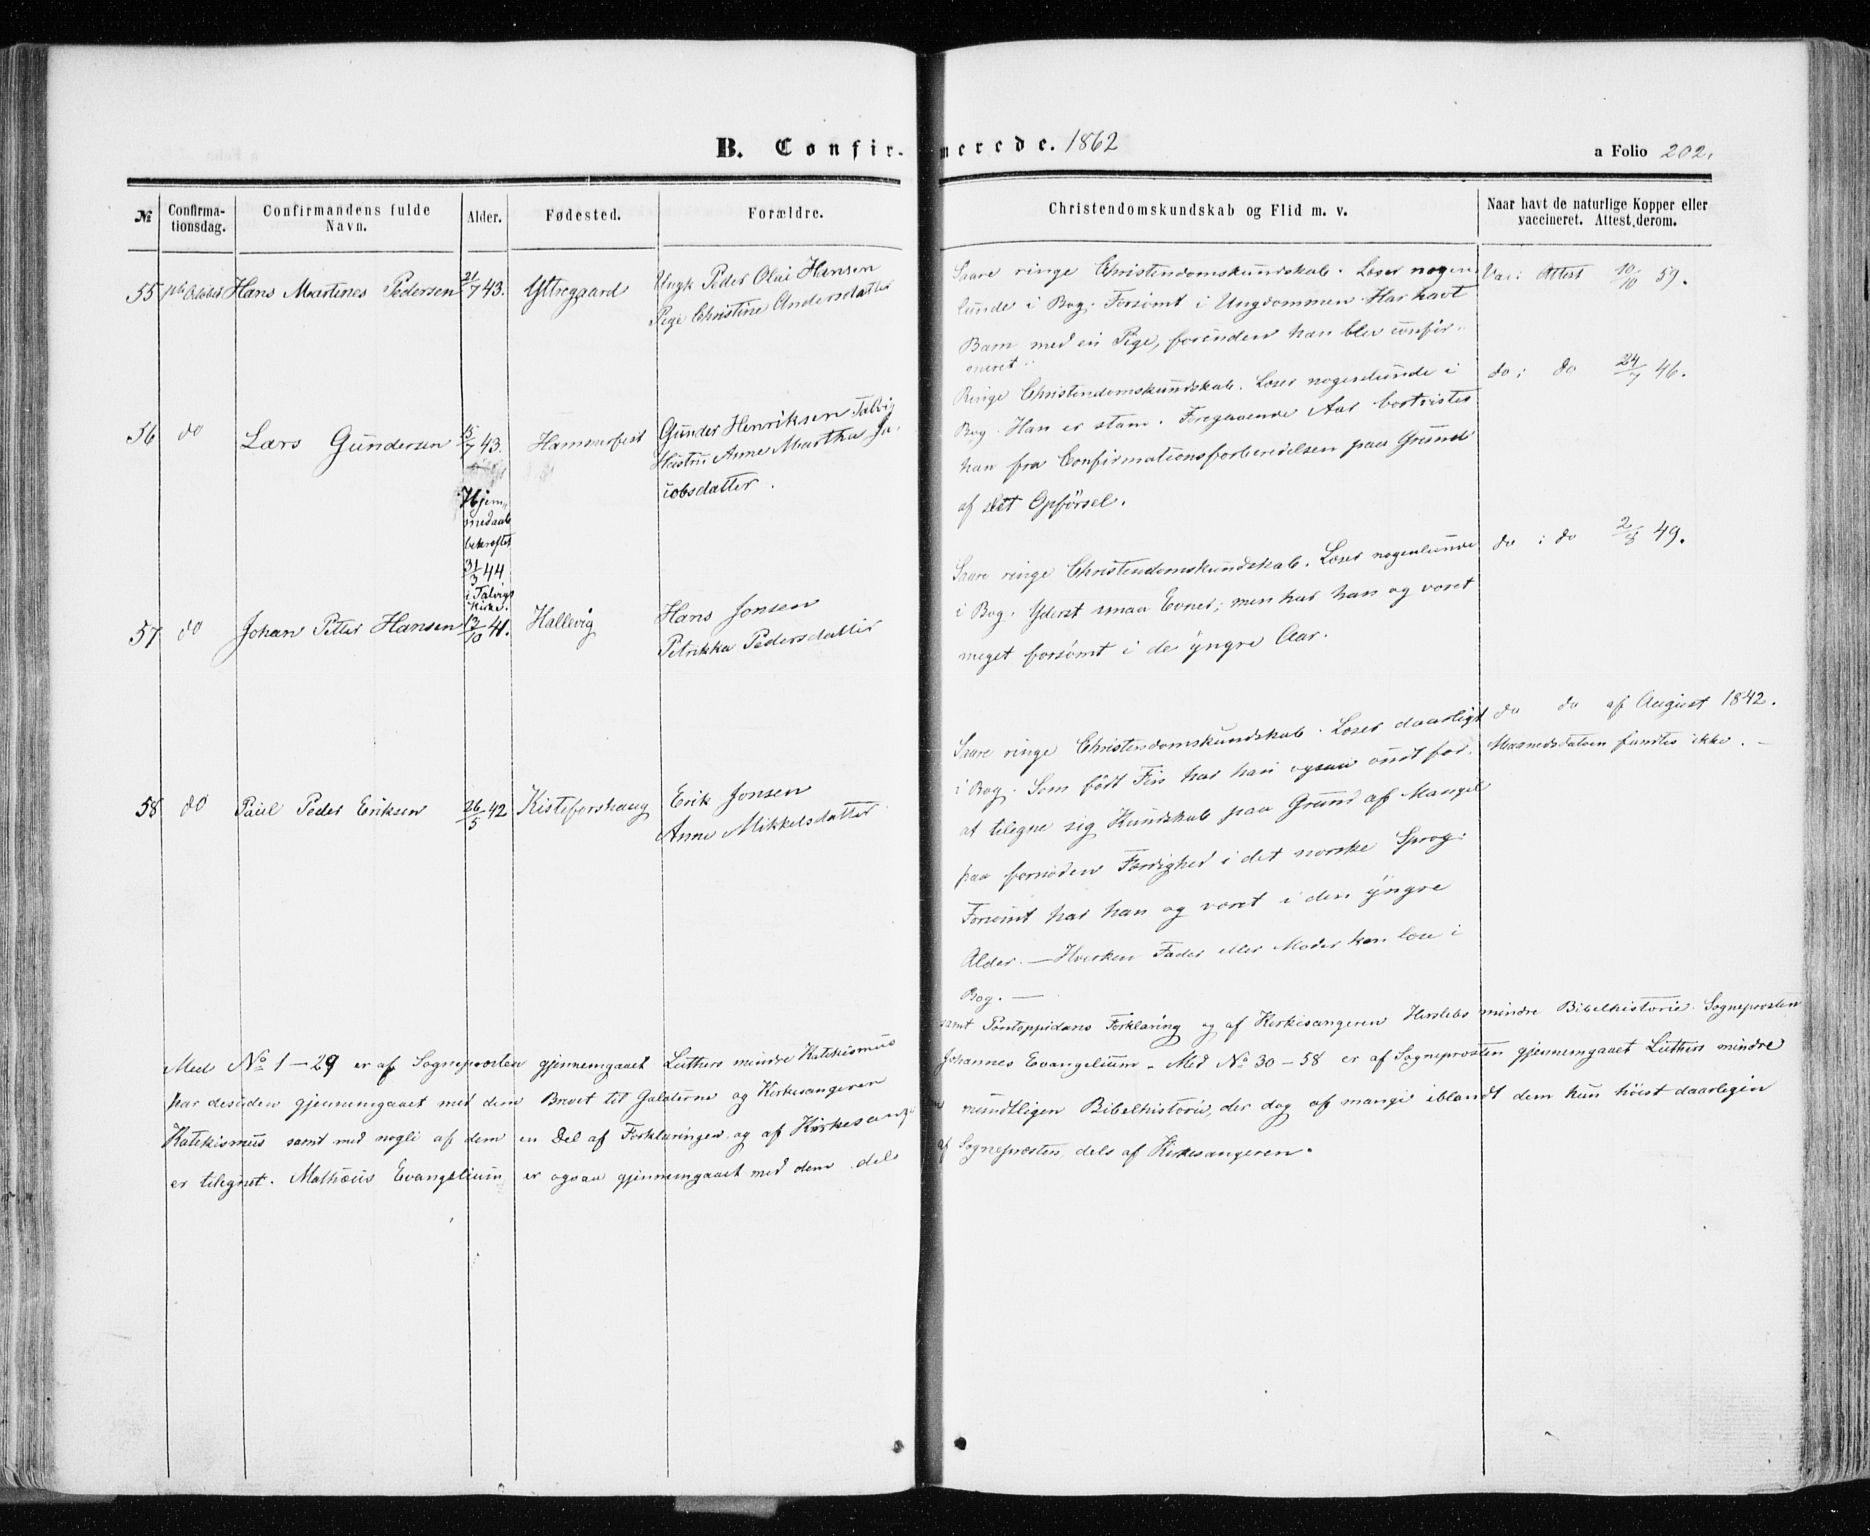 B. Confir-
merede. 1862
a Folio 202.
№
Confirma-
tionsdag.
Confirmandens fulde
Navn.
Alder.
Fødested.
Forældre.
Christendomskundskab og Flid m. v.
Naar havt de naturlige Kopper eller
vaccineret. Attest derom.
55 October Hans Martines Pedersen 21/7 43. Yttregaard
Ungk Peder Olai Hansen
Pige Christine Andersdatter
Saare ringe Christendomskundskab. Læser nogen-
lunde i Bog. Forsömt i Ungdommen. Har havt
Barn med en Pige, forinden han blev confir-
meret.
Vac: Attest 10/10 59.
56 do Lars Gundersen 15/7 43. Hammerfest
Hjem-
medaab
bekræftet
31/3 44
i Talvigs
Kirke.
Gunder Henriksen Talvig
Hustru Anne Martha Ja-
cobsdatter.
Ringe Christendomskundskab. Læser nogenlunde i
Bog. Han er stam. Foregaaende Aar bortvistes
han fra Confirmationsforberedelsen paa Grund
af slet Opførsel.
do: do 24/7 46.
57 do Johan Petter Hansen 12/10 41. Hallevig
Hans Jonsen
Petrikka Pedersdatter
Saare ringe Christendomskundskab. Læser nogenlunde
i Bog. Yderst smaa Evner; men har han og været
meget forsömt i de yngre Aar.
do: do 2/8 49.
58 do Paul Peder Eriksen 26/5 42 Kisteforshaug
Erik Jonsen
Anne Mikkelsdatter
Saare ringe Christendomskundskab. Læser daarligt
i Bog. Som födt Fin har han ogsaa ondt for
at tilegne sig Kundskab paa Grund af Mangel
paa fornöden Færdighed i det norske Sprog.
Forsömt har han og været i den yngre
Alder. — Hverken Fader eller Moder kan læse i
Bog. —
do do af August 1842.
Maanedsdatoen fandtes ikke. —
Med No 1-29 er af Sogneprosten gjennemgaaet Luthers mindre Katekismus
samt Pontoppidans Forklaring og af Kirkesangeren Herslebs mindre Bibelhistorie. Sogneprosten
har desuden gjennemgaaet med dem Brevet til Galaterne og Kirkesangeren
Johannes Evangelium. Med No 30-58 er af Sogneprosten gjennemgaaet Luthers mindre
Katekismus samt med nogle af dem en Del af Forklaringen og af Kirkesange
mundtligen Bibelhistorie, der dog af mange iblandt dem kun höist daarligen
er tilegnet. Mathæus Evangelium er ogsaa gjennemgaaet med dem dels
af Sogneprosten, dels af Kirkesangeren.